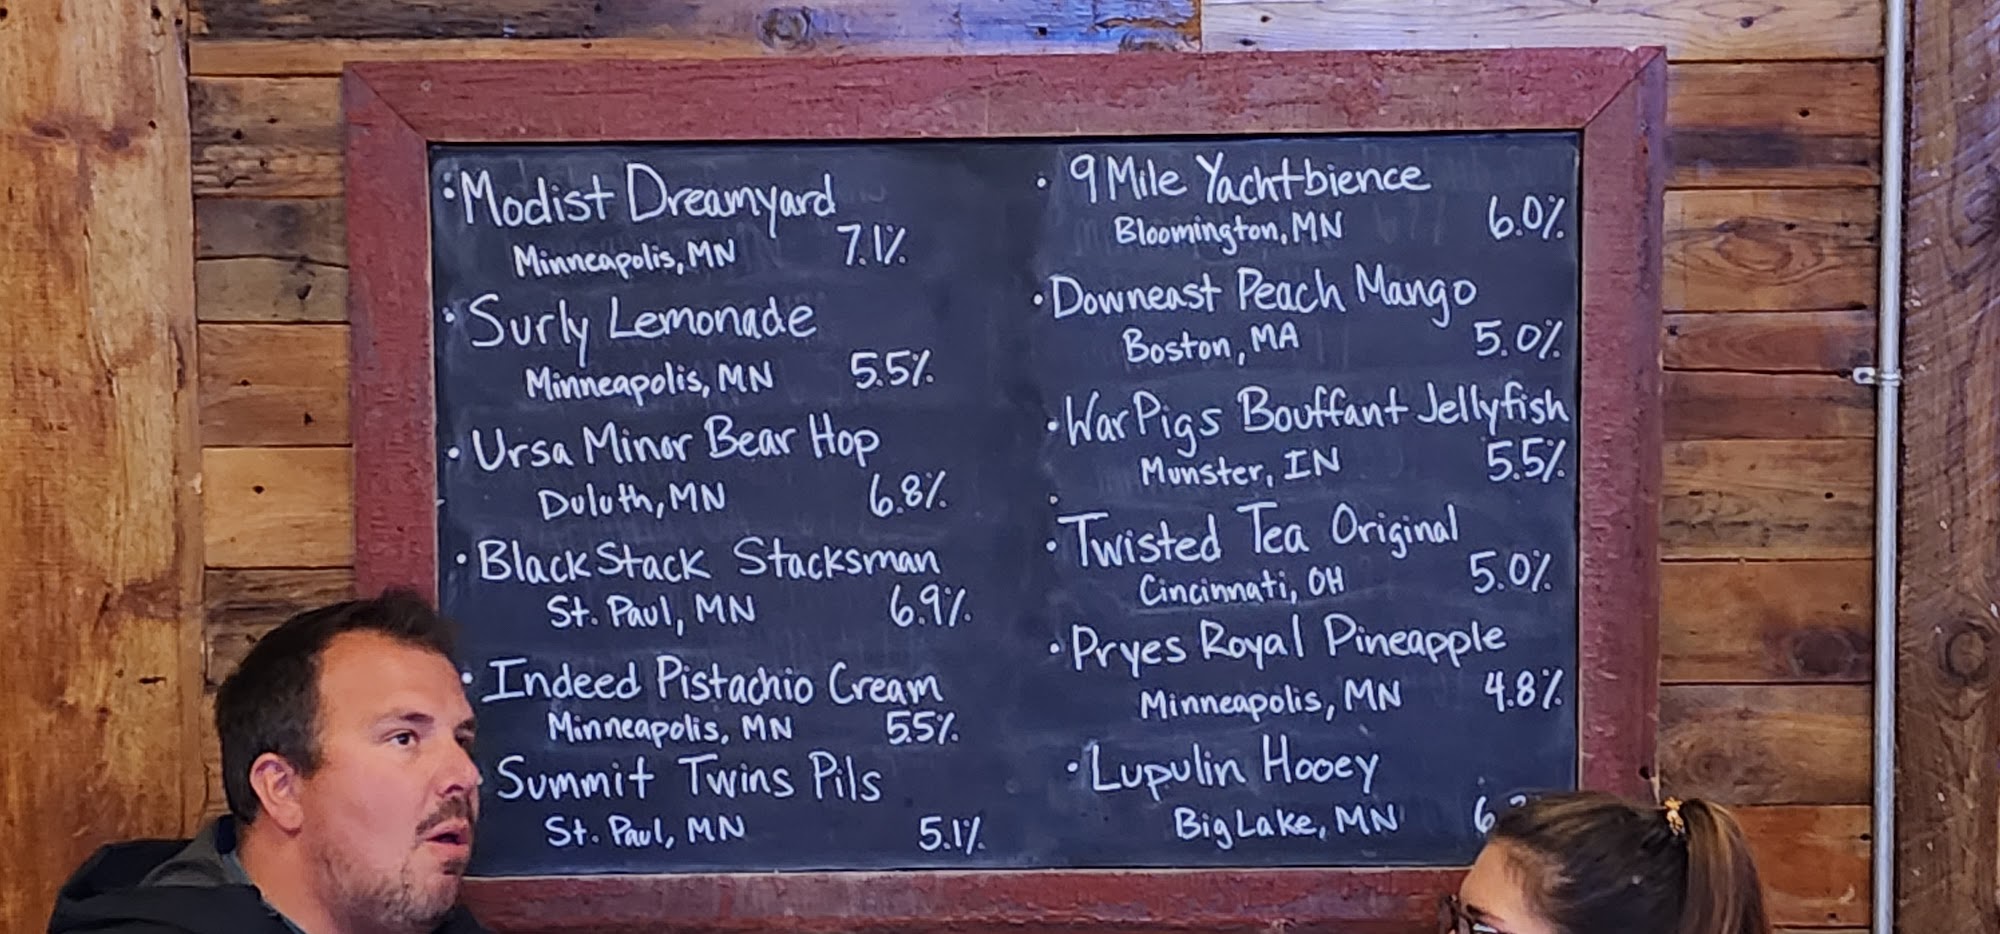 • Modist Dreamyard
Minneapolis, MN 7.1%
• Surly Lemonade
Minneapolis, MN 5.5%
• Ursa Minor Bear Hop
Duluth, MN 6.8%
• BlackStack Stacksman
St. Paul, MN 6.9%
• Indeed Pistachio Cream
Minneapolis, MN 5.5%
Summit Twins Pils
St. Paul, MN 5.1%
• 9 Mile Yachtbience
Bloomington, MN 6.0%
• Downeast Peach Mango
Boston, MA 5.0%
• WarPigs Bouffant Jellyfish
Munster, IN 5.5%
• Twisted Tea Original
Cincinnati, OH 5.0%
• Pryes Royal Pineapple
Minneapolis, MN 4.8%
• Lupulin Hooey
Big Lake, MN